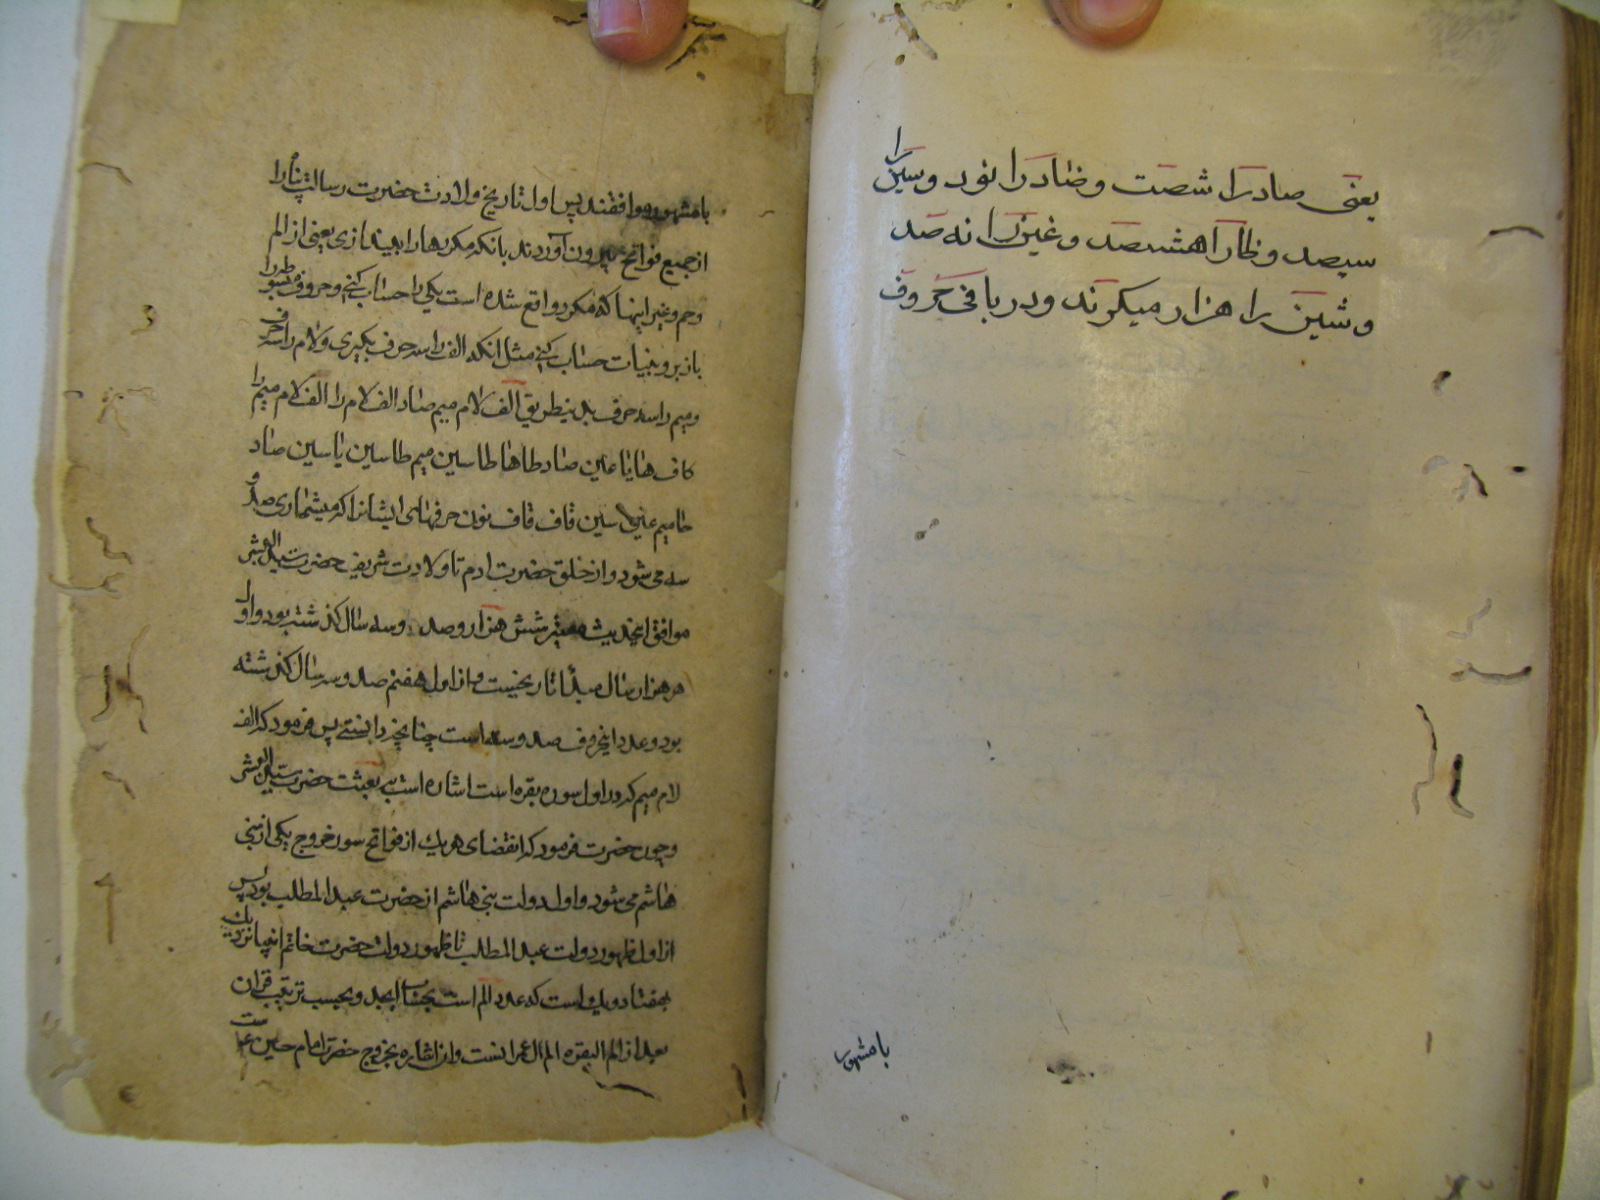 یعنی صاد را شصت و ضاد را نود و سین را
سیصد و ظا را هشتصد و غین را نه صد
و شین را هزار میکرند و در باقی حروف
با مشهور
با مشهور موافقند پس اول تاریخ ولادت حضرت رسالت پناه را
از جمیع فواتح بیرون آوردند بانکه مکررها را بیندازی یعنی از الم
و حم و غیر اینها که مکرر واقع شده است یکی را حساب کنی و حروف مبسوطه را
باز بر و بنیات حساب کنی مثل انکه الف را سه حرف بگیری و لام را سه حرف
و میم را سه حرف بدینطریق الف لام میم صاد الف لام را الف لام میم را
کاف ها یا عین صاد طا ها طا سین میم طا سین یا سین صاد
حا میم عین سین قاف قاف نون حرفهای ایشانرا که میشماری صد و
سه می شود و از خلق حضرت ادم تا ولادت شریف حضرت سید البشر
موافق اینحدیث معتبر شش هزار و صد و سه سال گذشته بود و اول
هر هزار سال مبدأ تاریخیست و از اول هفتم صد و سه سال گذشته
بود و عدد اینحروف صد و سه است چنانچه دانستی پس فرمود که الف
لام میم که در اول سوره بقره است اشاره است به بعثت حضرت سید البشر
و چون حضرت فرمود که انقضای هر یک از فواتح سور خروج یکی از بنی
هاشم می شود و اول دولت بنی هاشم از حضرت عبد المطلب بود پس
از اول ظهور دولت عبد المطلب تا ظهور دولت حضرت خاتم انبیا نزدیک
بهفتاد و یک است که عدد الم است بحساب ابجد و بحسب ترتیب قران
بعد از الم البقره الم ال عمرانست و ان اشاره بخروج حضرت امام حسین است